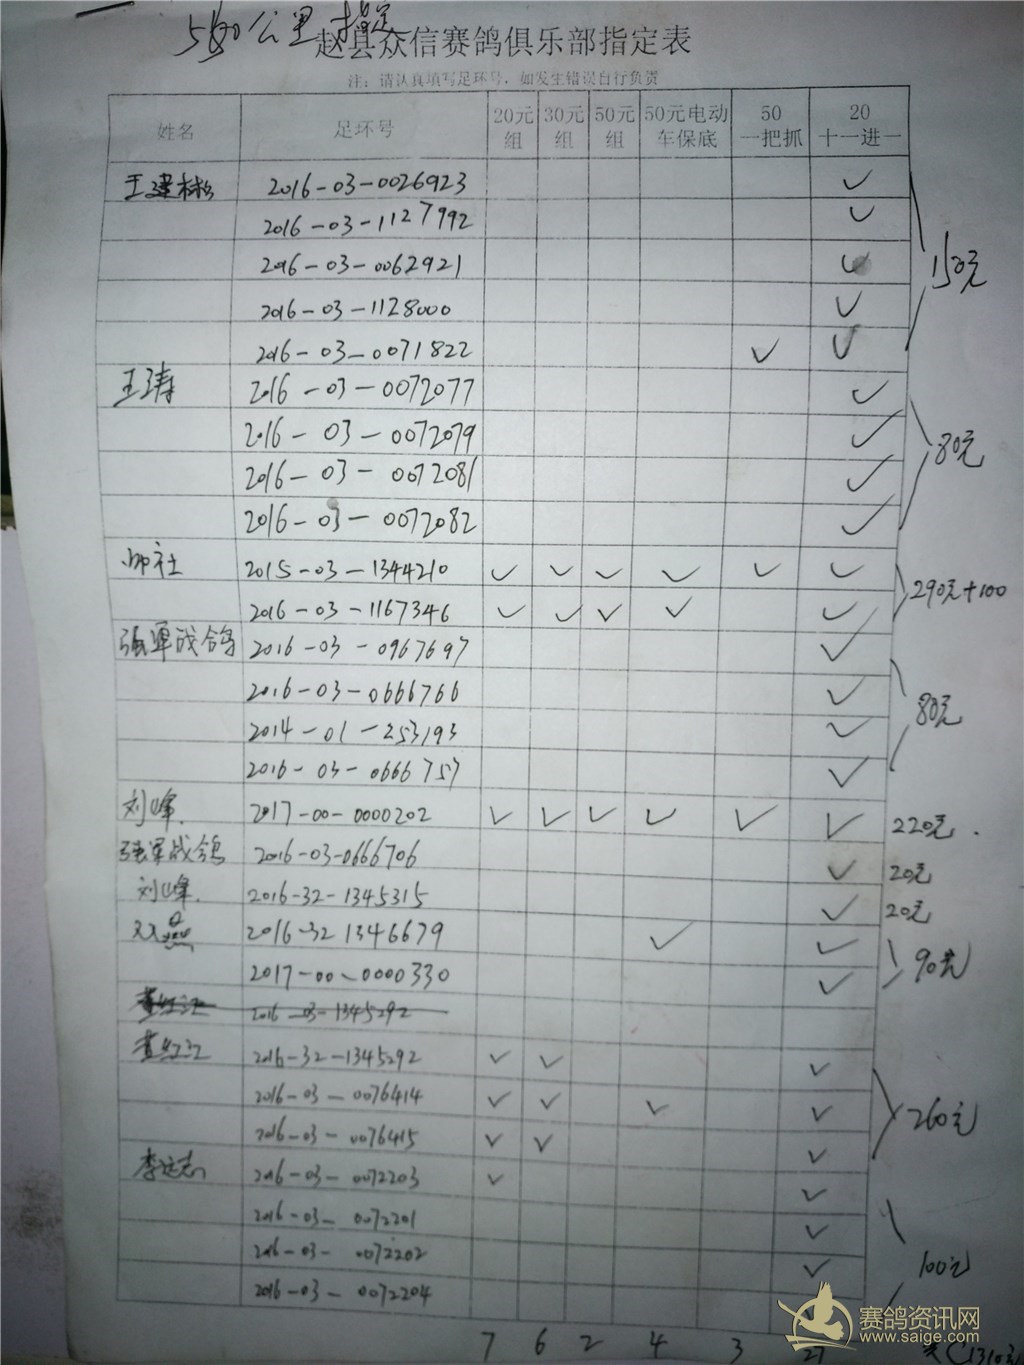 580公里指定
赵县众信赛鸽俱乐部指定表
注：请认真填写足环号，如发生错误自行负责
姓名 足环号 20元组 30元组 50元组 50元电动车保底 50一把抓 20十一进一
王建彬 2016-03-0026923 ✓
2016-03-1127992 ✓
2016-03-0062921 ✓ 150元
2016-03-1128000 ✓
2016-03-0071822 ✓ ✓
王涛 2016-03-0072077 ✓
2016-03-0072079 ✓ 80元
2016-03-0072081 ✓
2016-03-0072082 ✓
帅社 2015-03-1344210 ✓ ✓ ✓ ✓ ✓ ✓ 290元+100
2016-03-1167346 ✓ ✓ ✓ ✓ ✓
强军战鸽 2016-03-0967697 ✓
2016-03-0666766 ✓ 80元
2014-01-253193 ✓
2016-03-0666757 ✓
刘峰 2017-00-0000202 ✓ ✓ ✓ ✓ ✓ ✓ 220元
强军战鸽 2016-03-0666706 ✓ 20元
刘峰 2016-32-1345315 ✓ 20元
双燕 2016-32 1346679 ✓ ✓ 90元
2017-00-0000330 ✓
2016-03-1345292
2016-32-1345292 ✓ ✓ ✓
2016-03-0076414 ✓ ✓ ✓ ✓ 260元
2016-03-0076415 ✓ ✓ ✓
李运志 2016-03-0072203 ✓ ✓
2016-03-0072201 ✓
2016-03-0072202 ✓ 100元
2016-03-0072204 ✓
7 6 2 4 3 27 共(1310元
赛鸽资讯网
www.saige.com